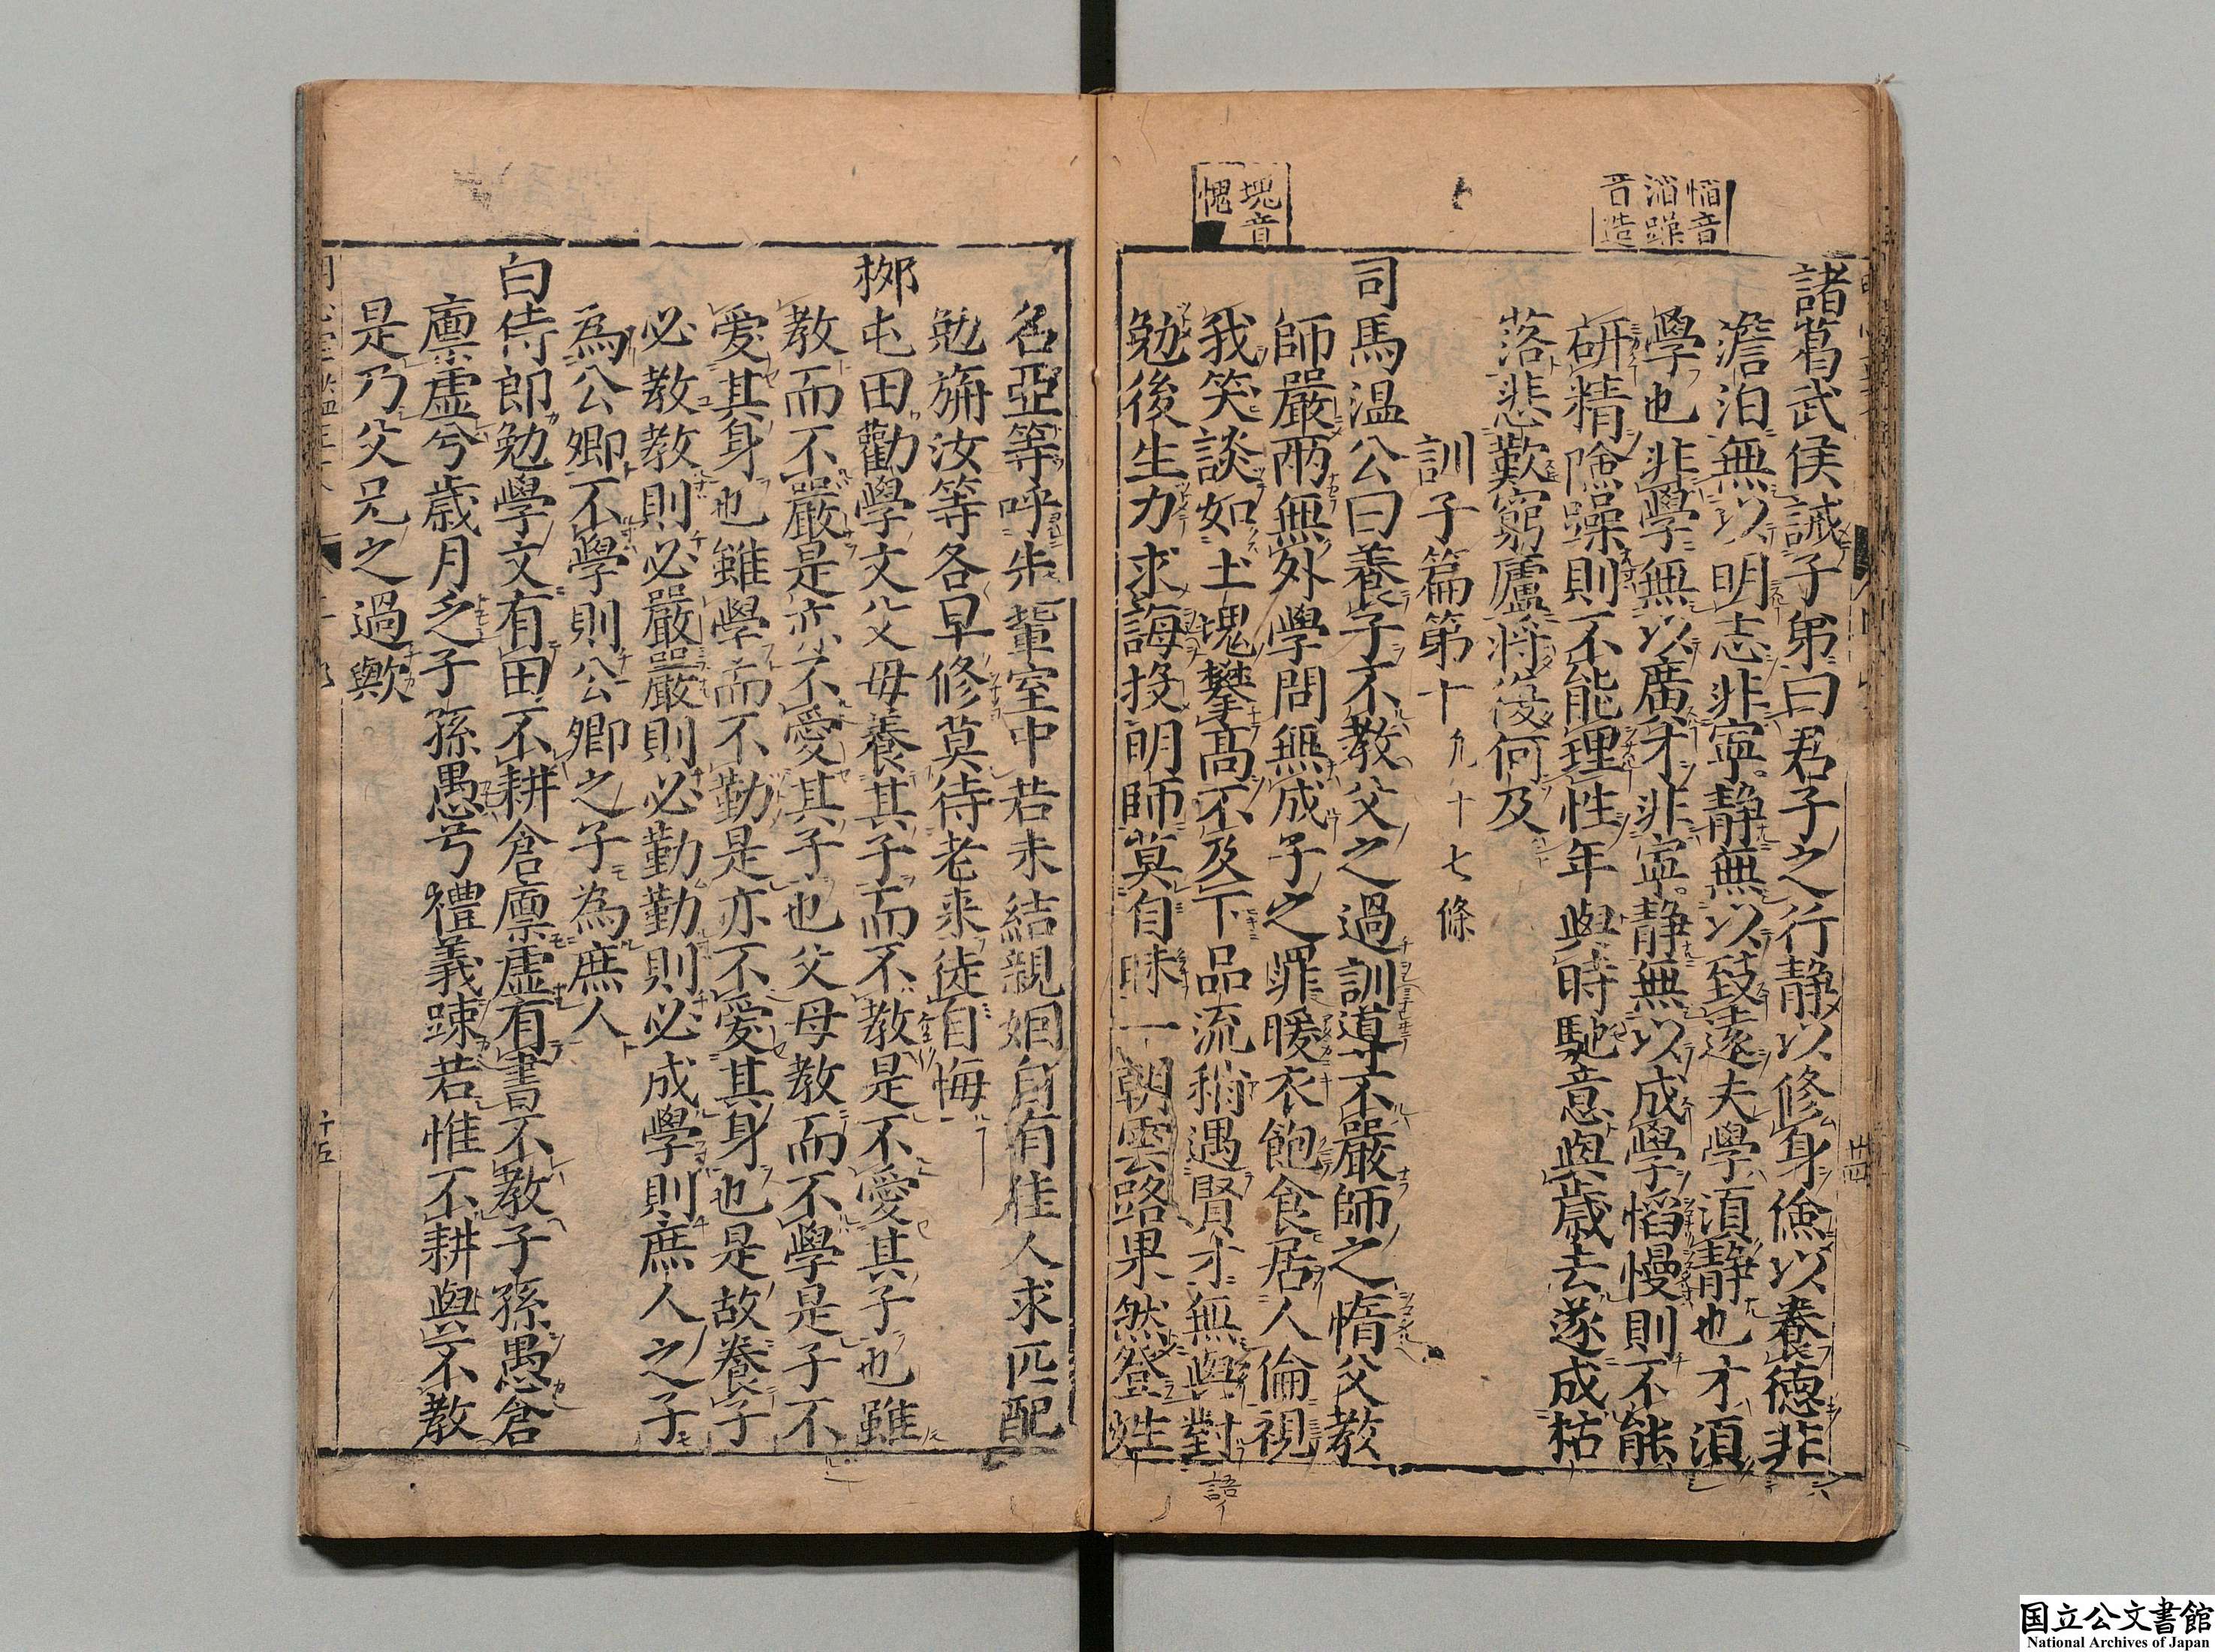 諸葛武侯誡子弟曰君子之行静以修身儉以養德非
澹泊無以明志非寧静無以致遠夫學須静也才須
學也非學無以廣才非寧静無以成學慆慢則不能
研精險躁則不能理性年與時馳意與歲去遂成枯
落悲歎窮廬將復何及
訓子篇第十九十七條
司馬温公曰養子不教父之過訓導不嚴師之惰父教
師嚴兩無外學問無成子之罪暖衣飽食居人倫視
我笑談如土塊攀高不及下品流稍遇賢才無與對
勉後生力求誨投明師莫自昧一朝雲路果然登姓
名亞等呼先輩室中若未結親姻自有佳人求匹配
勉旃汝等各早修莫待老來徒自悔
栁屯田勸學文父母養其子而不教是不愛其子也雖
教而不嚴是亦不愛其子也父母教而不學是子不
愛其身也雖學而不勤是亦不愛其身也是故養子
必教教則必嚴嚴則必勤勤則必成學則庶人之子
為公卿不學則公卿之子為庶人
白侍郎勉學文有田不耕倉廪虚有書不教子孫愚倉
廪虚兮歲月乏子孫愚兮禮義踈若惟不耕與不教
是乃父兄之過歟
慆音
滔躁
音造
塊音
愧
語イ
廿四
十五
国立公文書館
National Archives of Japan